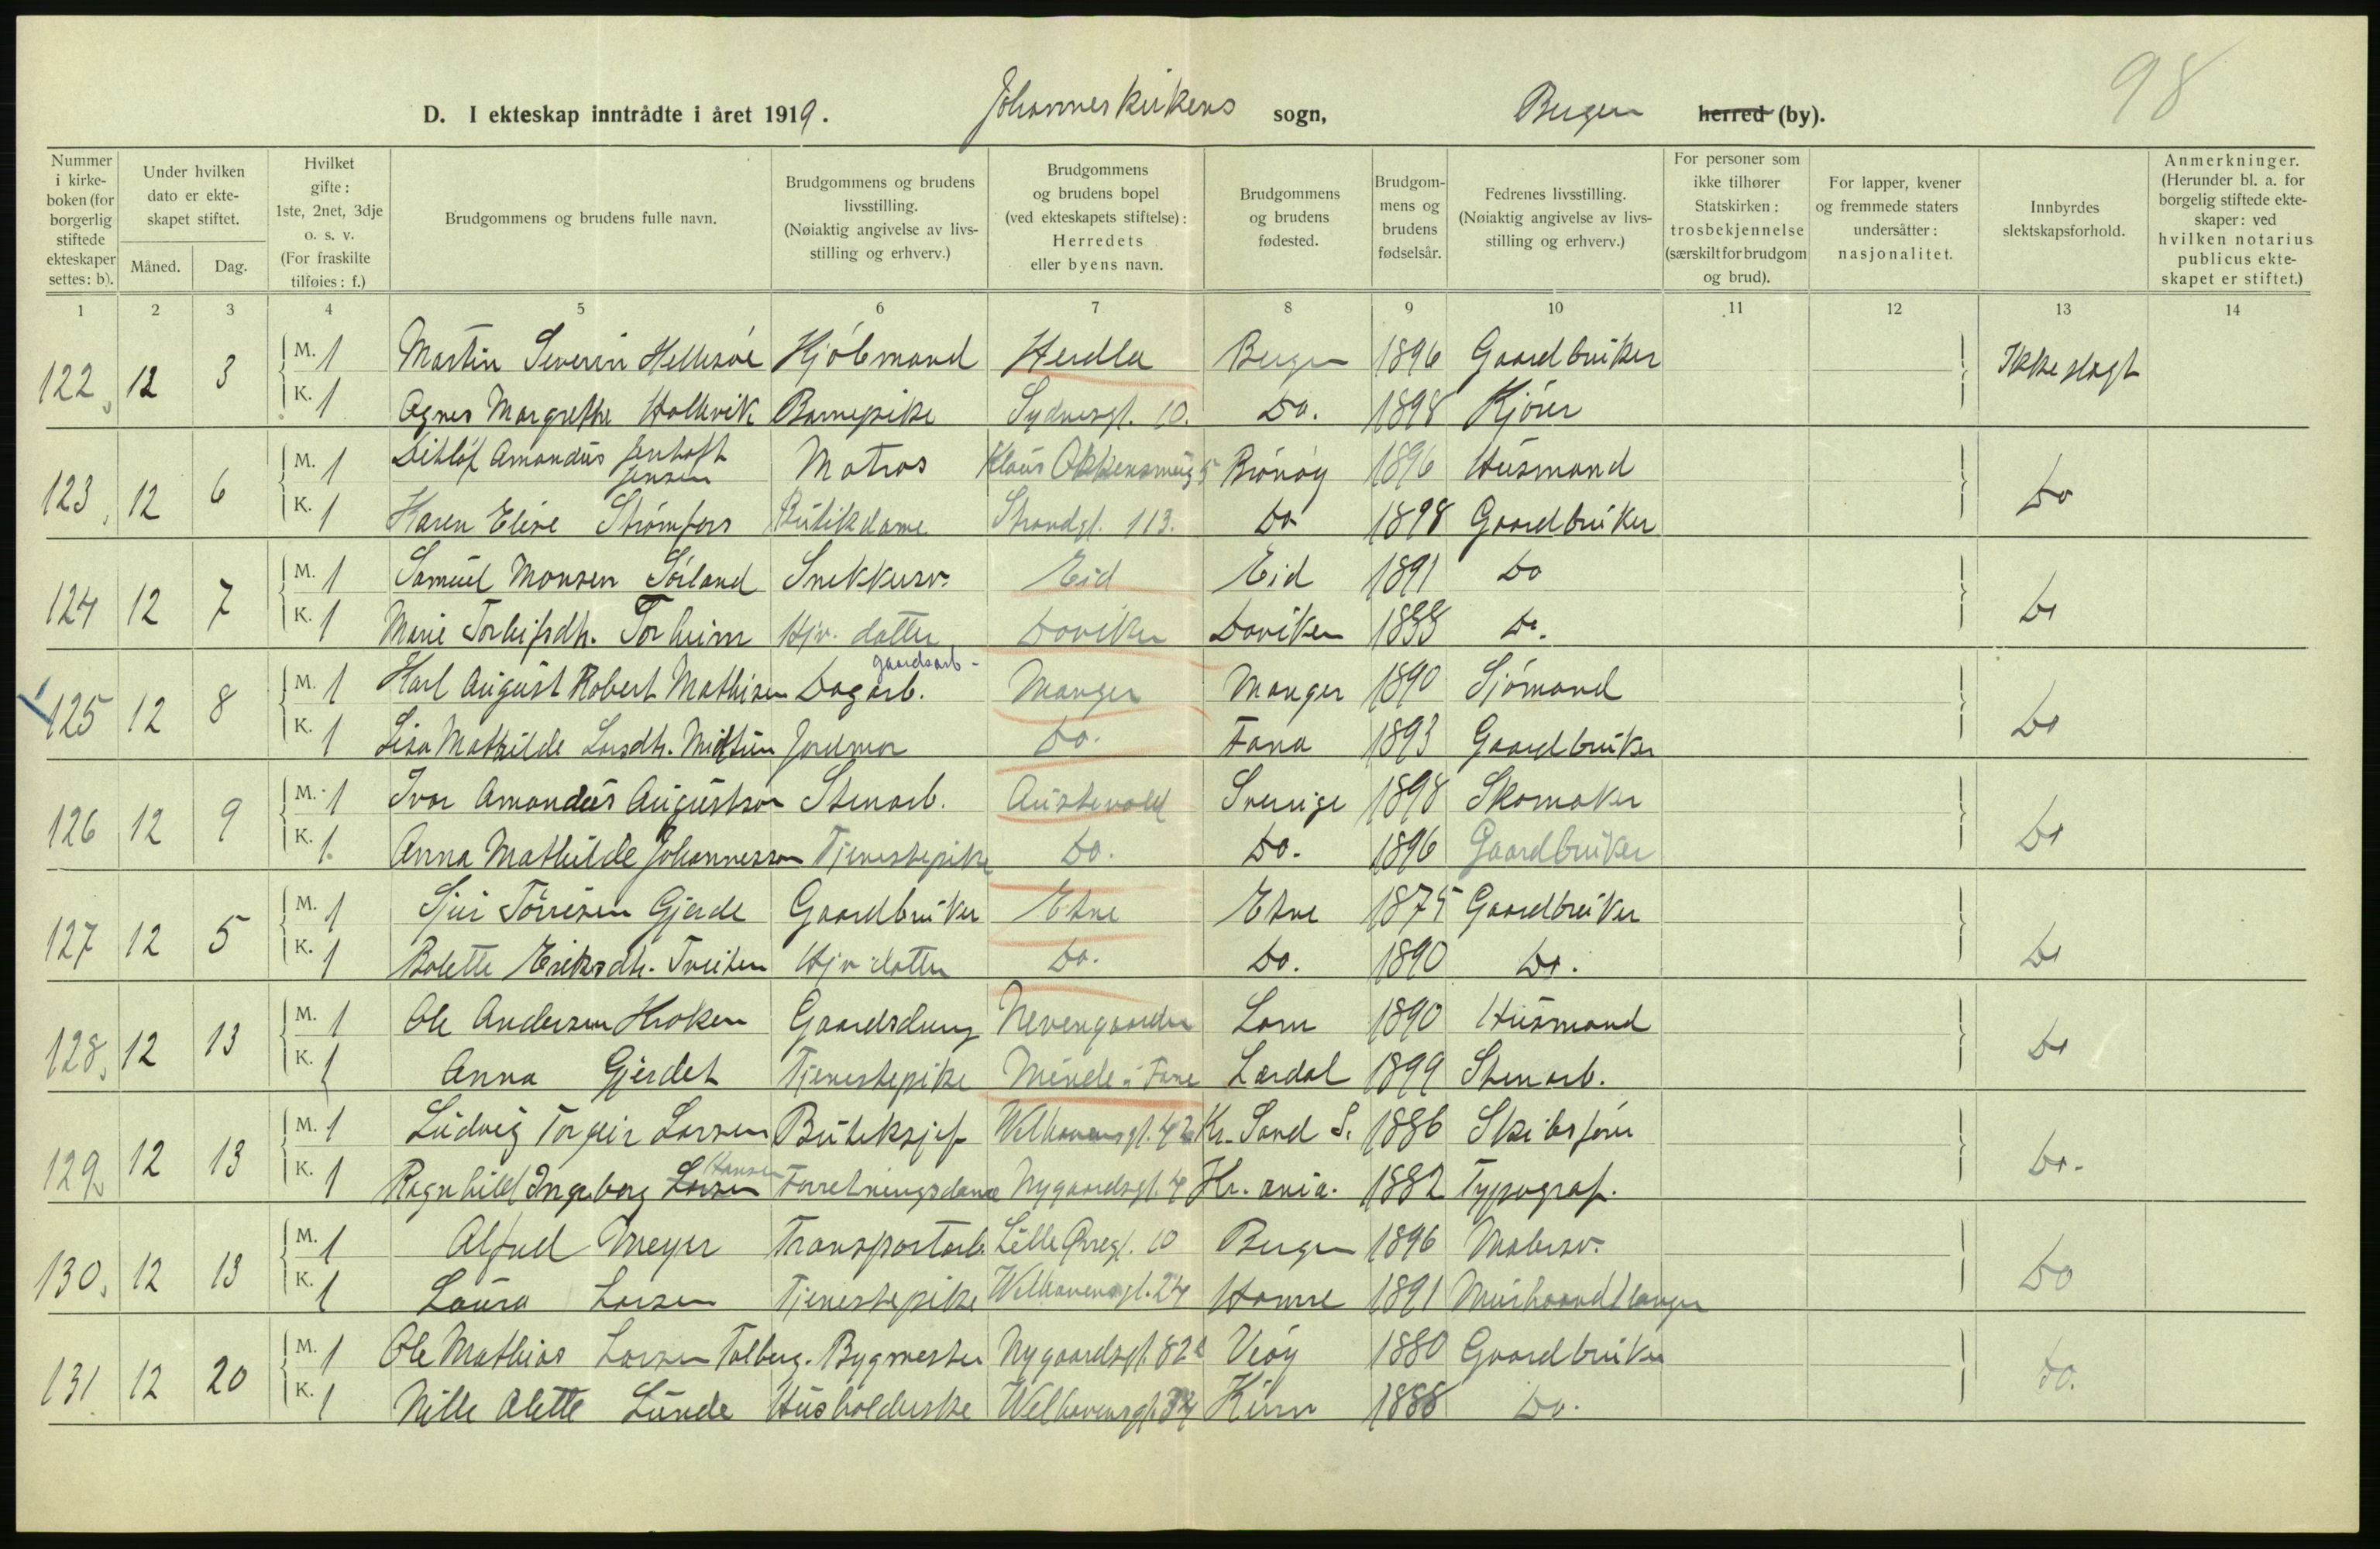 98
D. I ekteskap inntrådte i året 1919. Johanneskirkens sogn, Bergen herred (by).
Nummer i kirke-boken (for borgerlig stiftede ekteskaper settes: b).
Under hvilken dato er ekte-skapet stiftet.
Måned. Dag.
Hvilket gifte: 1ste, 2net, 3dje o. s. v. (For fraskilte tilføies: f.)
Brudgommens og brudens fulle navn.
Brudgommens og brudens livsstilling. (Nøiaktig angivelse av livs-stilling og erhverv.)
Brudgommens og brudens bopel (ved ekteskapets stiftelse): Herredets eller byens navn.
Brudgommens og brudens fødested.
Brudgom-mens og brudens fødselsår.
Fedrenes livsstilling. (Nøiaktig angivelse av livs-stilling og erhverv.)
For personer som ikke tilhører Statskirken: trosbekjennelse (særskilt for brudgom og brud).
For lapper, kvener og fremmede staters undersåtter: nasjonalitet.
Innbyrdes slektskapsforhold.
Anmerkninger. (Herunder bl. a. for borgelig stiftede ekte-skaper: ved hvilken notarius publicus ekte-skapet er stiftet.)
1 2 3 4 5 6 7 8 9 10 11 12 13 14
122, 12 3 M. 1 Martin Severin Hellesøe Hjólmand Herdla Bergen 1896 Gaardbruker Ikke slegt
K. 1 Agnes Margrethe Hollevik Barnepike Sydnesgt. 10. Do. 1898 Kjører
123, 12 6 M. 1 Ditlöf Amandus Jenhoft Jensen Matros Klaus Okkensmug 5 Brónóy 1896 Husmand Do
K. 1 Karen Elise Strømfors Butikdame Strandgt. 113. Do 1898 Gaardbruker
124 12 7 M. 1 Samuel Monsen Sørland Snekkersv. Eid Eid 1891 Do Do
K. 1 Marie Torleifsdtr. Torheim Hjv. datter Daviken Daviken 1888 Do.
125 12 8 M. 1 Karl August Robert Mathisen Dagarb. gaardsarb- Manger Manger 1890 Sjómand Do
K. 1 Lisa Mathilde Larsdtr. Midttun Jordmor Do. Fana 1893 Gaardbruker
126 12 9 M. 1 Ivar Amandus Augustson Stenarb. Austevold Sverige 1898 Skomaker Do
K. 1. Anna Mathilde Johannesson Tjenestepike Do. Do. 1896 Gaardbruker
127 12 5 M. 1 Sjur Tórresen Gjerde Gaardbruker Etne Etne 1875 Gaardbruker Do
K. 1 Bolette Eriksdtr. Tveiten Hjv datter Do. Do. 1890 Do.
128, 12 13 M. 1 Ole Andersen Kroken Gaardsdreng Nevengaarden Lom 1890 Husmand Do
K. 1 Anna Gjerdet Tjenestepike Minde i Fane Lærdal 1899 Stenarb.
129 12 13 M. 1 Ludvig Torgeir Larsen Butiksjef Welhavensgt. 42 Kr. Sand S. 1886 Skibsfører Do.
K. 1 Ragnhild Ingeborg Larsen Hansen Forretningsdame Nygaardsgt. 4 Kr. ania. 1882 Typograf.
130, 12 13 M. 1 Alfred Meyer Transportarb. Lille Øvregt. 10 Bergen 1896 Malersv. Do
K. 1 Laura Larsen Tjenestepike Welhavensgt. 24 Hamre 1891 Murhaandlanger
131 12 20 M. 1 Ole Mathias Larsen Talberg. Bygmester Nygaardsgt. 82 Veóy 1880 Gaardbruker Do.
K. 1 Nille Alette Lunde Husholderske Welhavensgt. 34 Kinn 1888 Do.